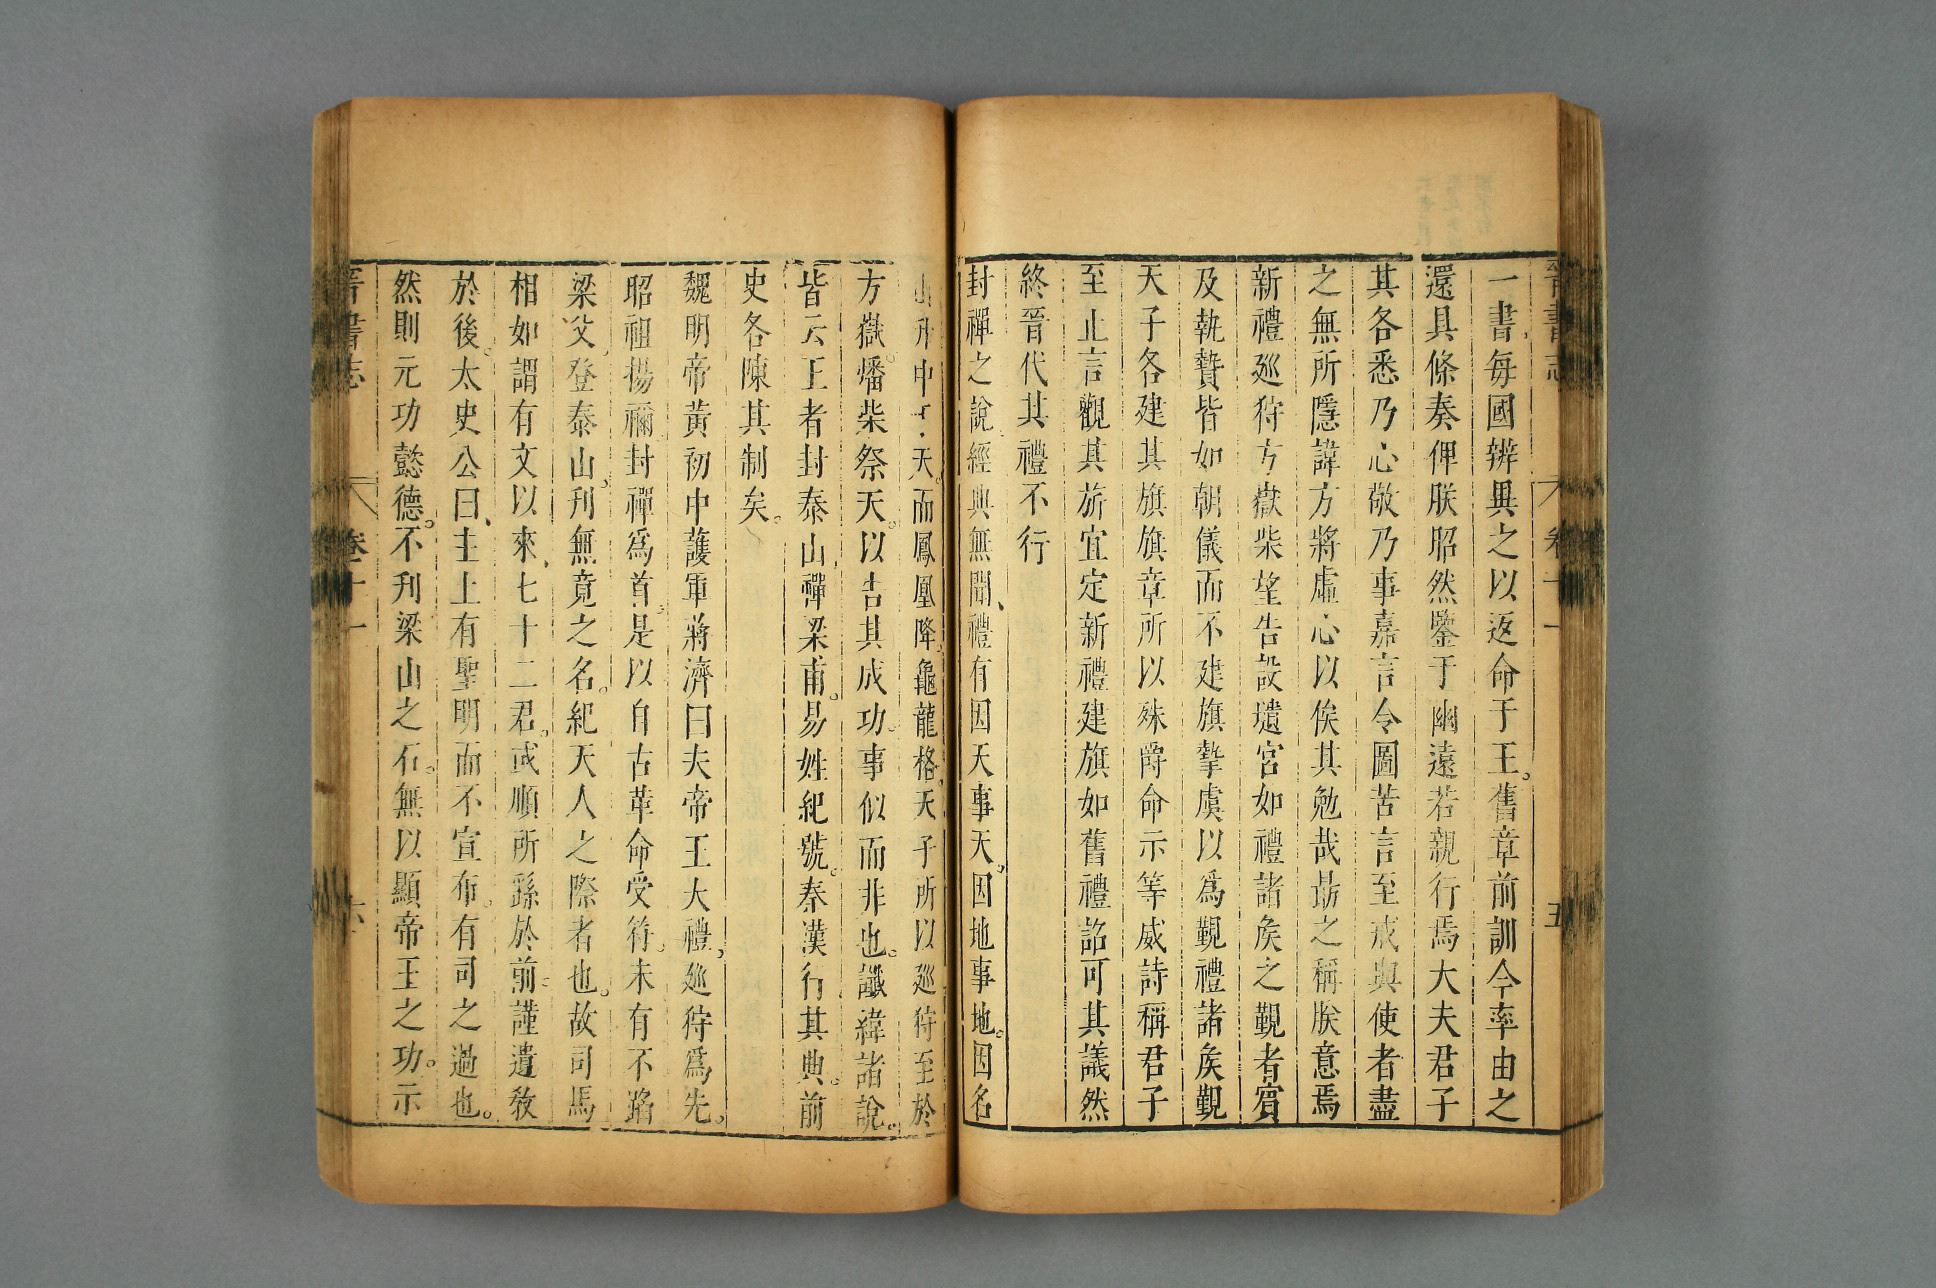 晉書志 卷十一 五
一書每國辨異之以返命于王舊章前訓今率由之
還具條奏俾朕昭然鑒于幽遠若親行焉大夫君子
其各悉乃心敬乃事嘉言令圖苦言至戒與使者盡
之無所隱諱方將虛心以俟其勉哉勗之稱朕意焉
新禮廵狩方嶽柴望告設壝宮如禮諸矦之覲者賓
及執贄皆如朝儀而不建旗摯虞以爲覲禮諸矦覲
天子各建其旗旗章所以殊爵命示等威詩稱君子
至止言觀其旂宜定新禮建旗如舊禮詔可其議然
終晉代其禮不行
封禪之說經典無聞禮有因天事天因地事地因名
山升中于天而鳳凰降龜龍格天子所以廵狩至於
方嶽燔柴祭天以告其成功事似而非也讖緯諸說
皆云王者封泰山禪梁甫易姓紀號秦漢行其典前
史各陳其制矣
魏明帝黃初中護軍蔣濟曰夫帝王大禮廵狩爲先
昭祖揚禰封禪爲首是以自古革命受符未有不蹈
梁父登泰山刋無竟之名紀天人之際者也故司馬
相如謂有文以來七十二君或順所繇於前謹遺敎
於後太史公曰主上有聖明而不宣布有司之過也
然則元功懿德不刋梁山之石無以顯帝王之功示
晉書志 卷十一 六